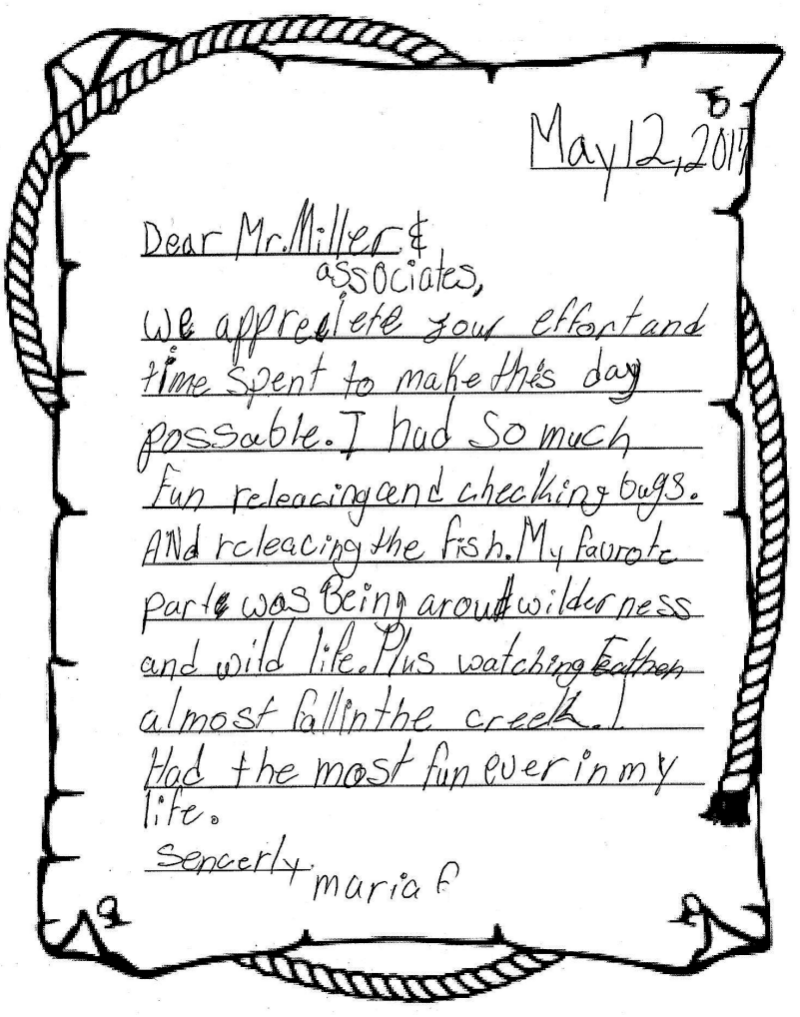 May 12, 2017
Dear Mr. Miller &
associates,
We appreciete your effort and
time spent to make this day
possable. I had so much
fun releacing and checking bugs.
AND releacing the fish. My favrote
part was Being around wilderness
and wild life. Plus watching
almost fall in the creek. I
Had the most fun ever in my
life.
Sencerly.
maria